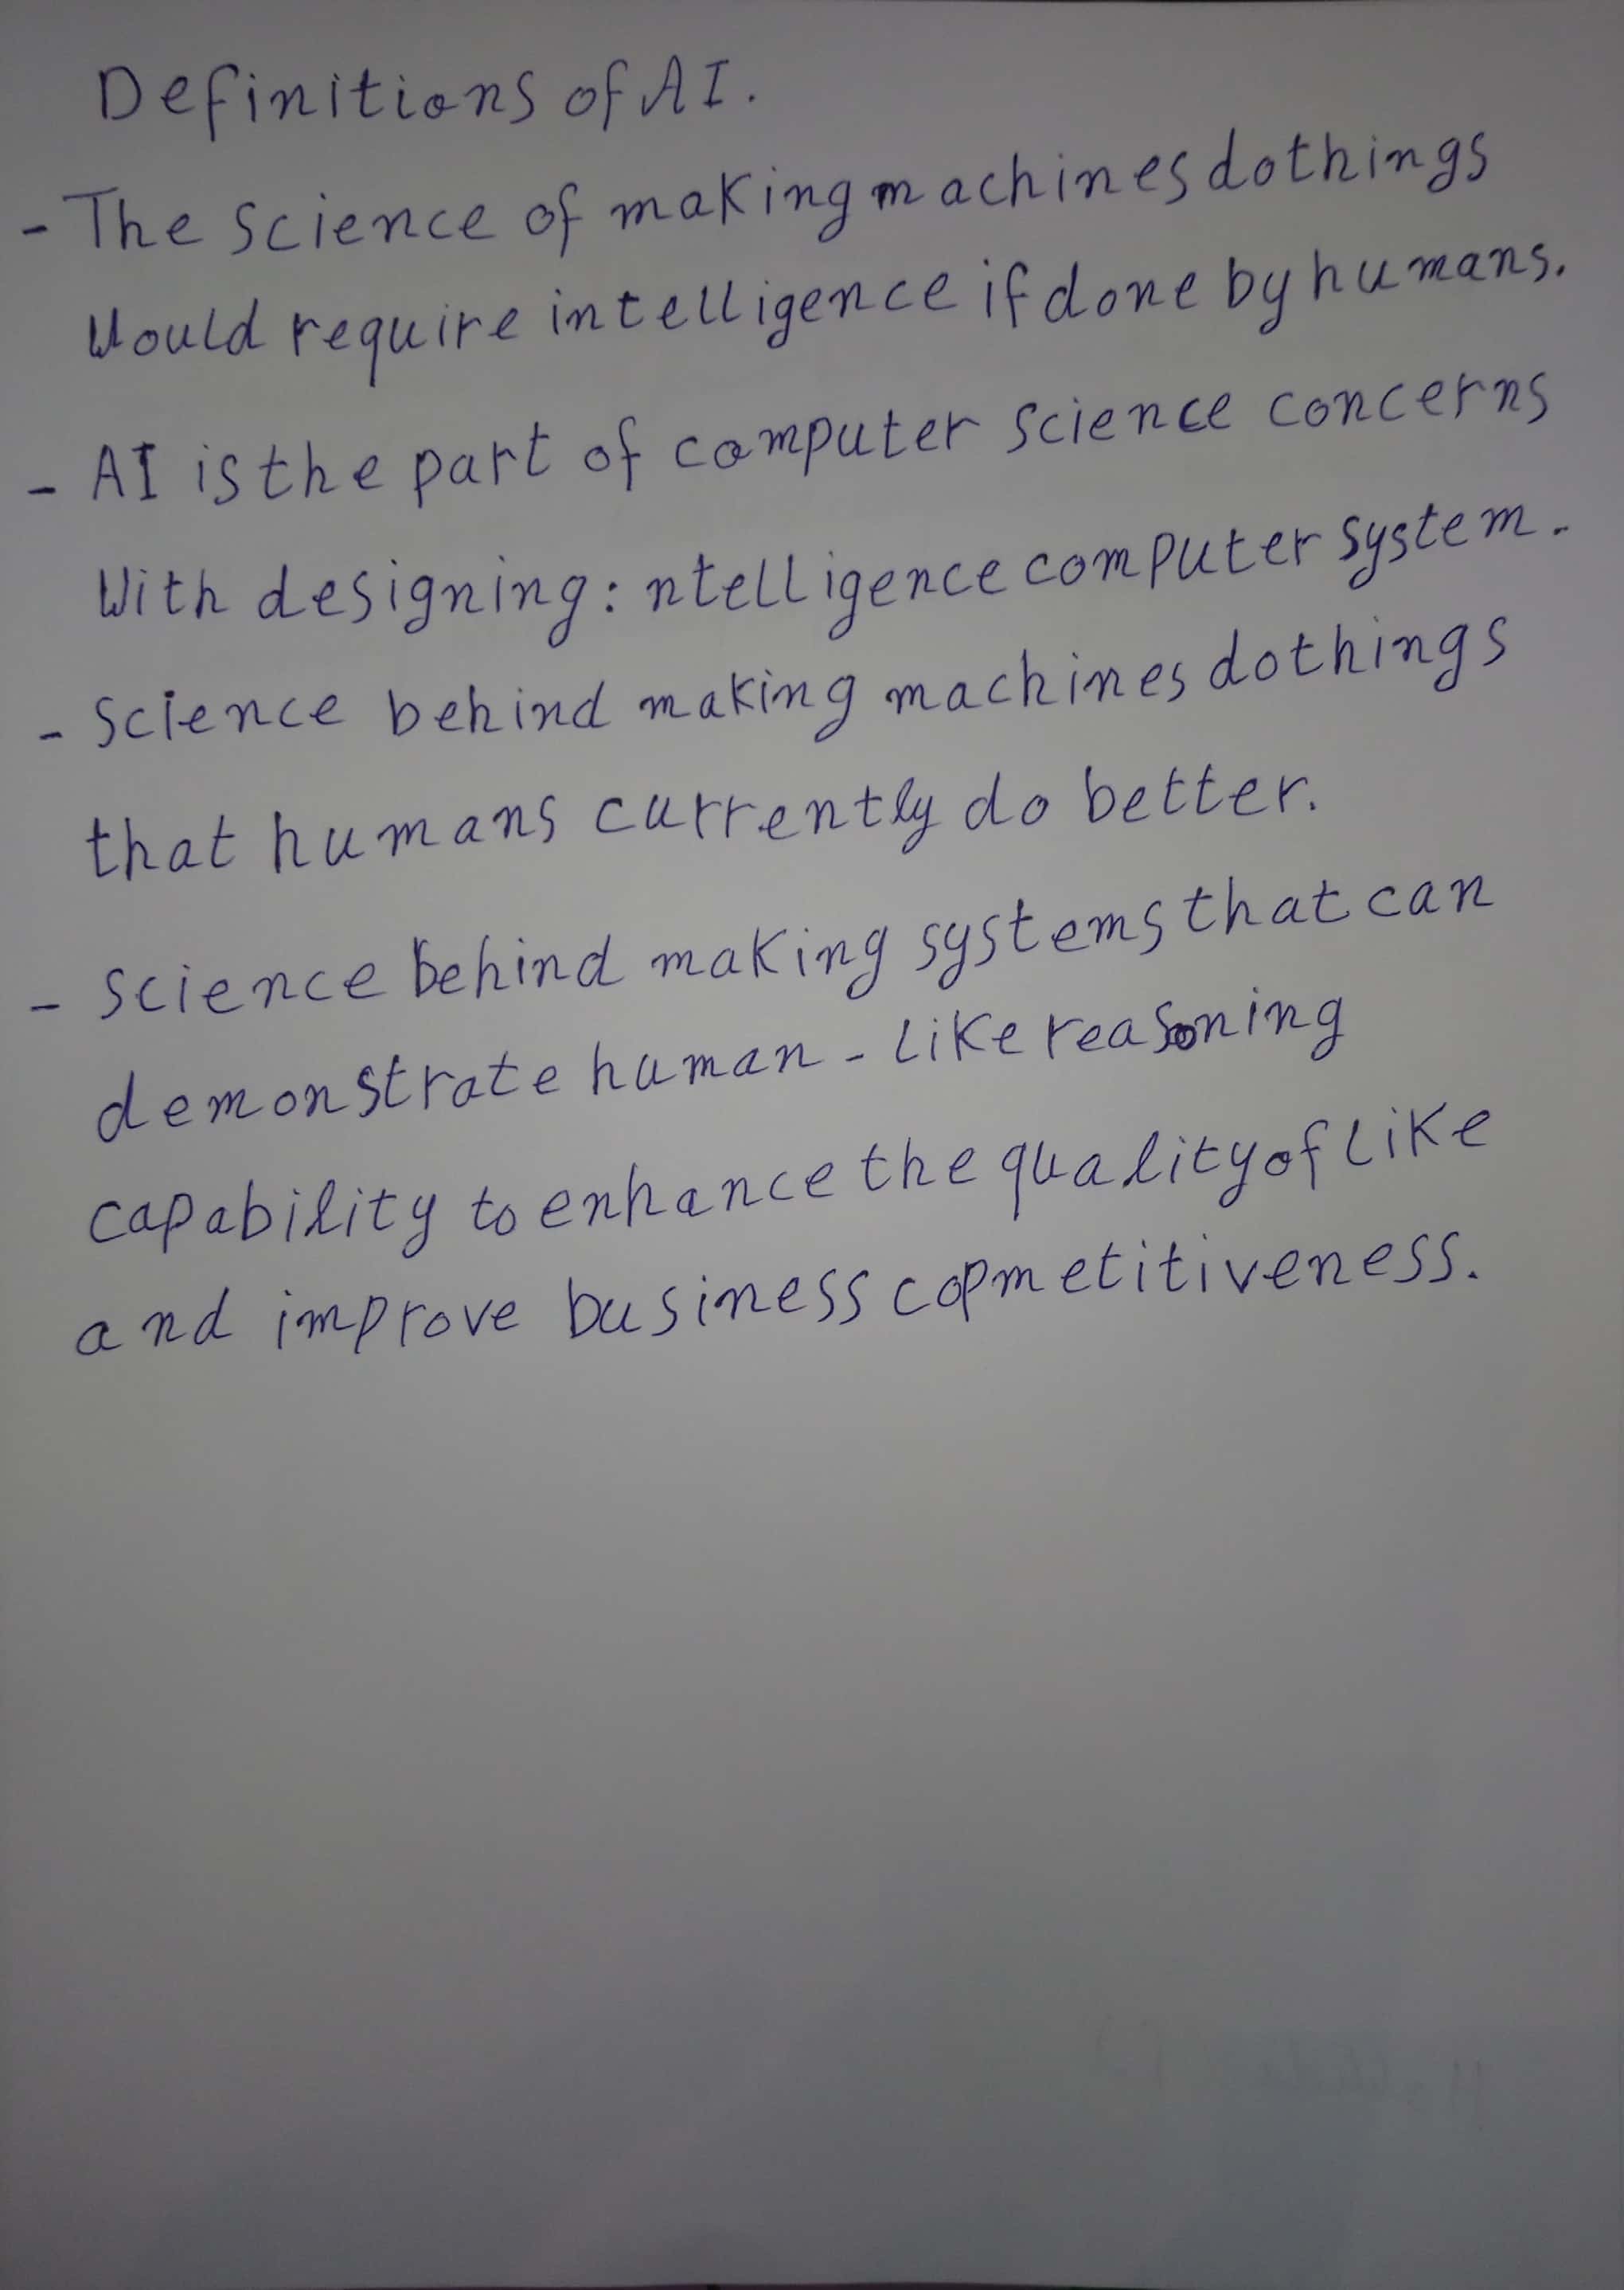 Definitions of AI.
- The Science of making machines do things
Would require intelligence if done by humans.
- AI is the part of computer science concerns
With designing: ntelligence computer system.
- Science behind making machines do things
that humans currently do better.
- science behind making systems that can
demonstrate human-like reasoning
capability to enhance the quality of like
and improve business copmetitiveness.